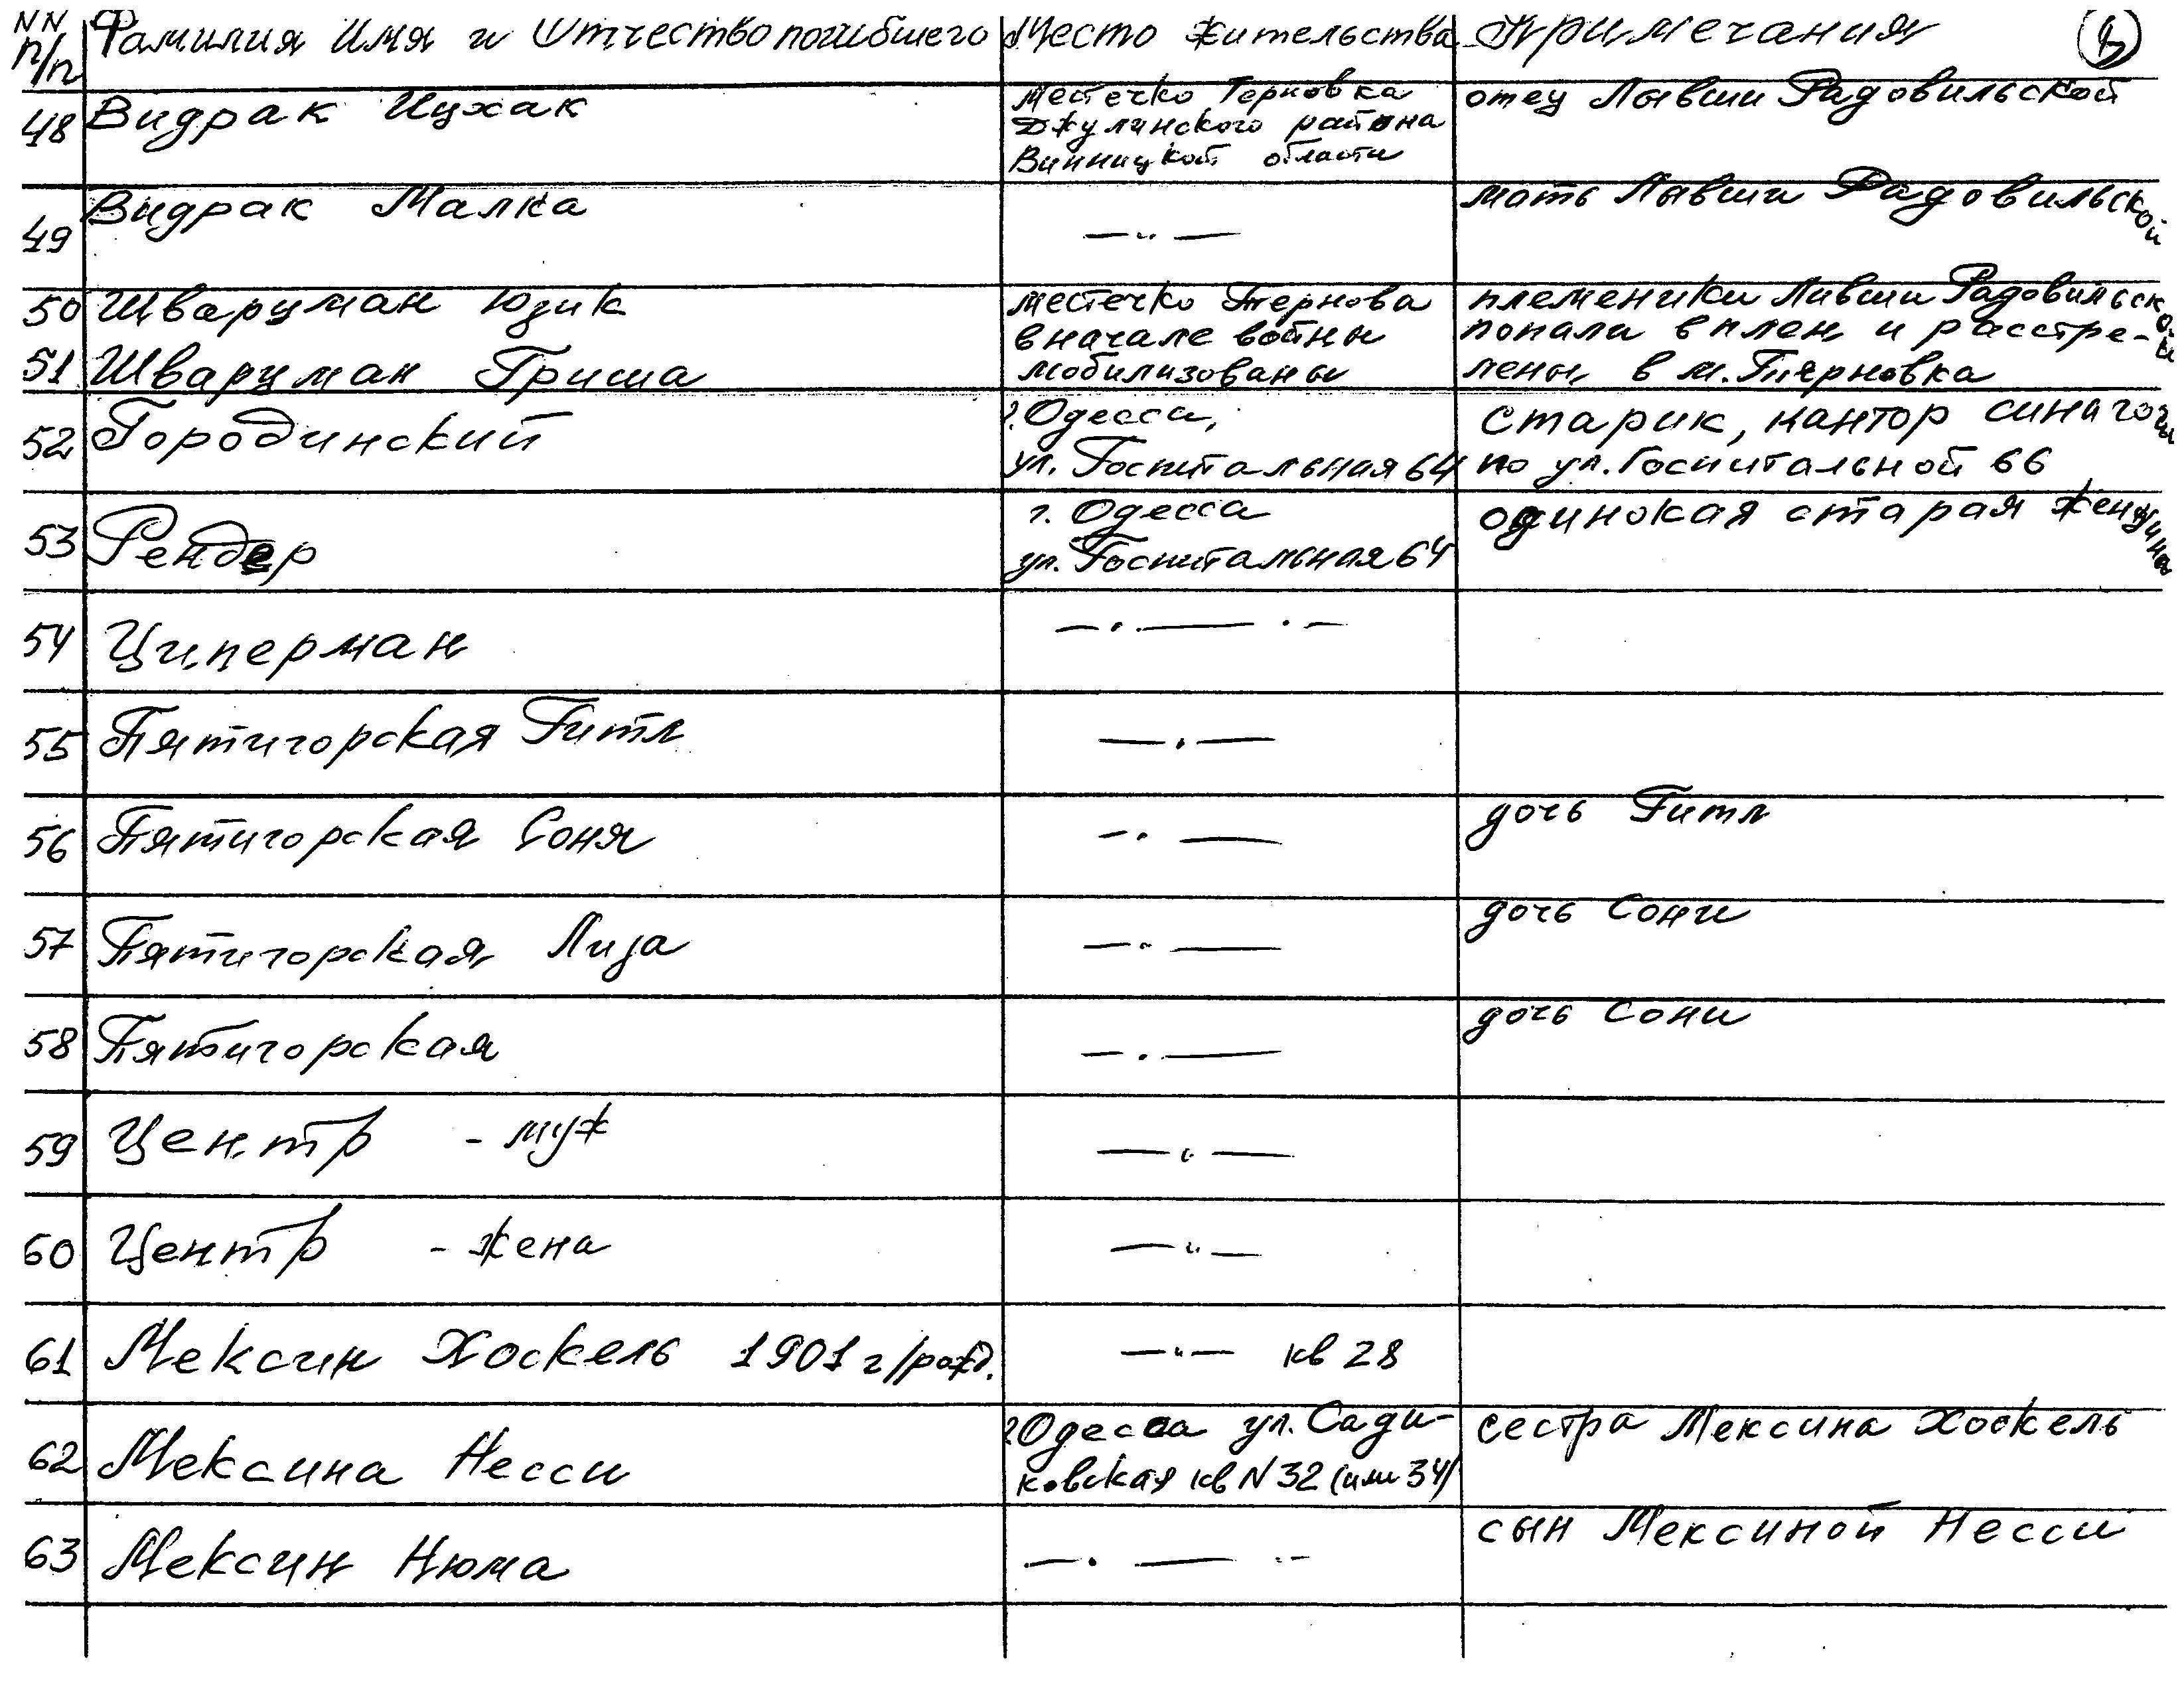 NN п/п Фамилия Имя и Отчество погибшего Место жительства Примечания
48 Видрак Ицхак
Местечко Терновка
Джулинского района
Винницкой области
отец Лывши Радовильской
49 Видрак Малка
—"—
мать Лывши Радовильской
50 Шварцман Юзик
51 Шварцман Гриша
местечко Тернова
вначале войны
мобилизованы
племеники Лившы Радовильской
попали в плен и расстре-
лены в м. Терновка
52 Городинский
г. Одесса,
ул. Госпитальная 64
старик, кантор синагоги
по ул. Госпитальной 66
53 Рендер
г. Одесса
ул. Госпитальная 64
одинокая старая женщина
54 Циперман
—"—"—
55 Пятигорская Гитл
—"—
56 Пятигорская Соня
—"—
дочь Гитл
57 Пятигорская Лиза
—"—
дочь Сони
58 Пятигорская
—"—
дочь Сони
59 Центр - муж
—"—
60 Центр - жена
—"—
61 Мексин Хоскель 1901 г/рожд.
—"— кв 28
62 Мексина Несси
г Одесса ул. Сади-
ковская кв N 32 (или 34)
сестра Мексина Хоскель
63 Мексин Нюма
—"—"—
сын Мексиной Несси